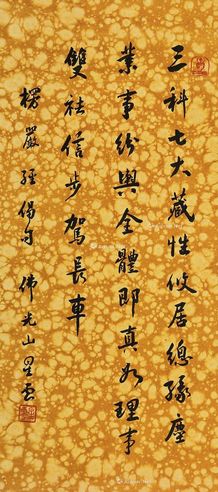 三科七大藏性攸居總緣塵
業事紛與全體即真如理事
雙祛信步駕長車
楞嚴經偈句 佛光山星雲